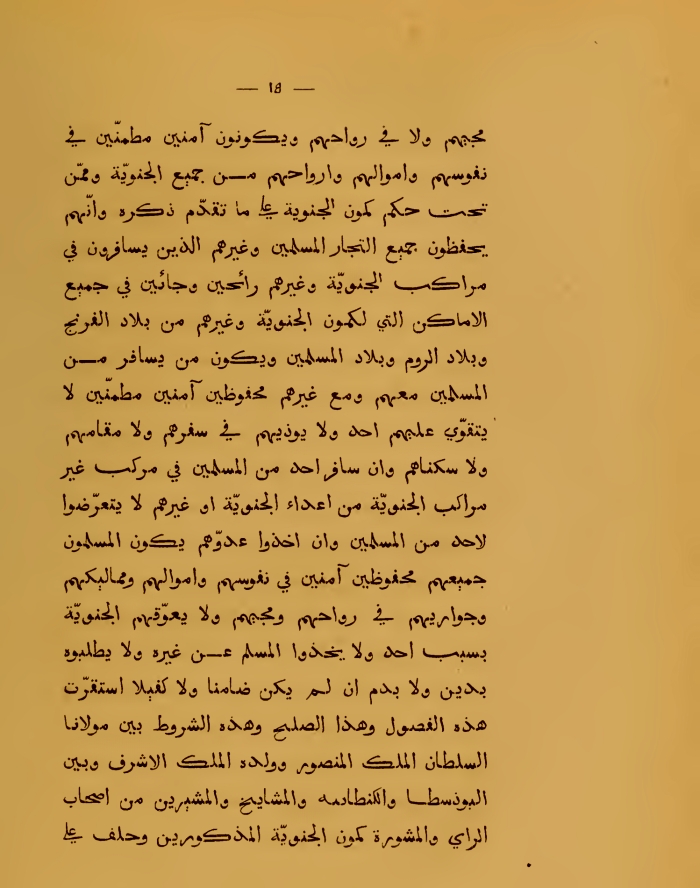 — ١٥ —
مجيهم ولا في رواحهم ويكونون آمنين مطمنّين في
نفوسهم واموالهم وارواحهم مــن جميع الجنويّة وممّن
تحت حكم كمون الجنوية على ما تقدّم ذكره وانّهم
يحفظون جميع التجار المسلمين وغيرهم الذين يسافرون في
مراكب الجنويّة وغيرهم رائحين وجائين في جميع
الاماكن التي لكمون الجنويّة وغيرهم من بلاد الفرنج
وبلاد الروم وبلاد المسلمين ويكون من يسافر مــن
المسلمين معهم ومع غيرهم محفوظين آمنين مطمنّين لا
يتقوّي عليهم احد ولا يوذيهم في سفرهم ولا مقامهم
ولا سكناهم وان سافر احد من المسلمين في مركب غير
مراكب الجنويّة من اعداء الجنويّة او غيرهم لا يتعرّضوا
لاحد من المسلمين وان اخذوا عدوّهم يكون المسلمون
جميعهم محفوظين آمنين في نفوسهم واموالهم ومماليكهم
وجواريهم في رواحهم ومجيهم ولا يعوّقهم الجنويّة
بسبب احد ولا يخذوا المسلم عــن غيره ولا يطلبوه
بدين ولا بدم ان لــم يكن ضامنا ولا كفيلا استقرّت
هذه الفصول وهذا الصلح وهذه الشروط بين مولانا
السلطان الملك المنصور وولده الملك الاشرف وبين
البوذسطا والمشايخ والمشيرين من اصحاب
الراي والمشورة كمون الجنويّة المذكورين وحلف على